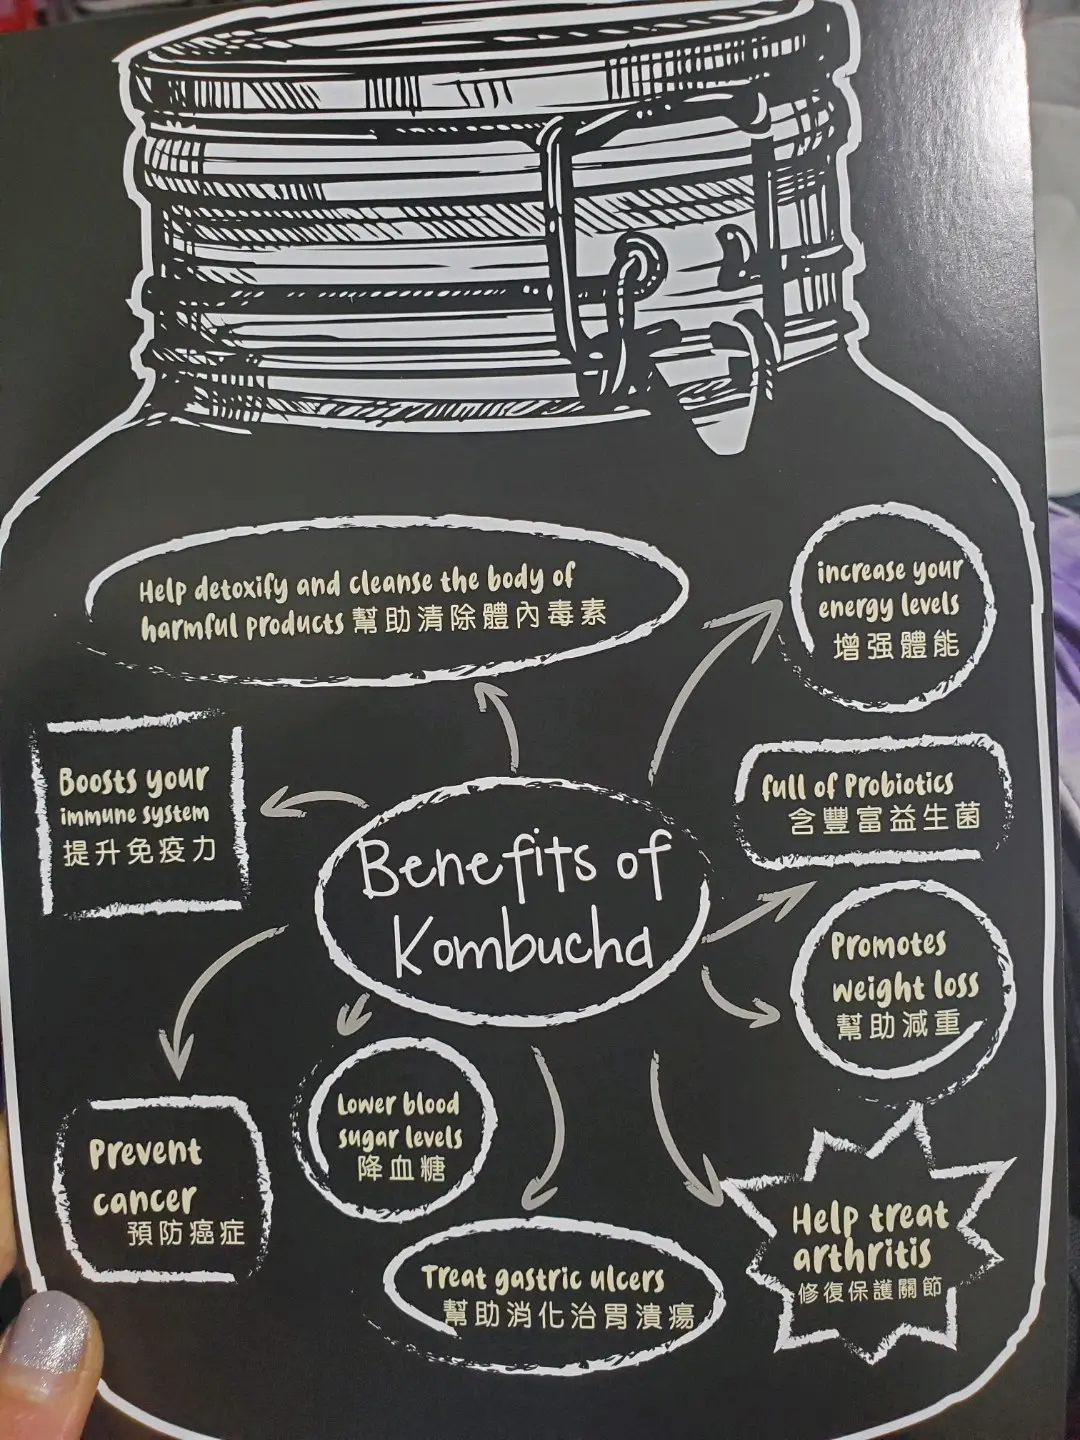 Help detoxify and cleanse the body of
harmful products 幫助清除體內毒素
increase your
energy levels
增强體能
Boosts your
immune system
提升免疫力
full of Probiotics
含豐富益生菌
Benefits of
Kombucha
Promotes
weight loss
幫助減重
Prevent
cancer
預防癌症
Lower blood
sugar levels
降血糖
Treat gastric ulcers
幫助消化治胃潰瘍
Help treat
arthritis
修復保護關節